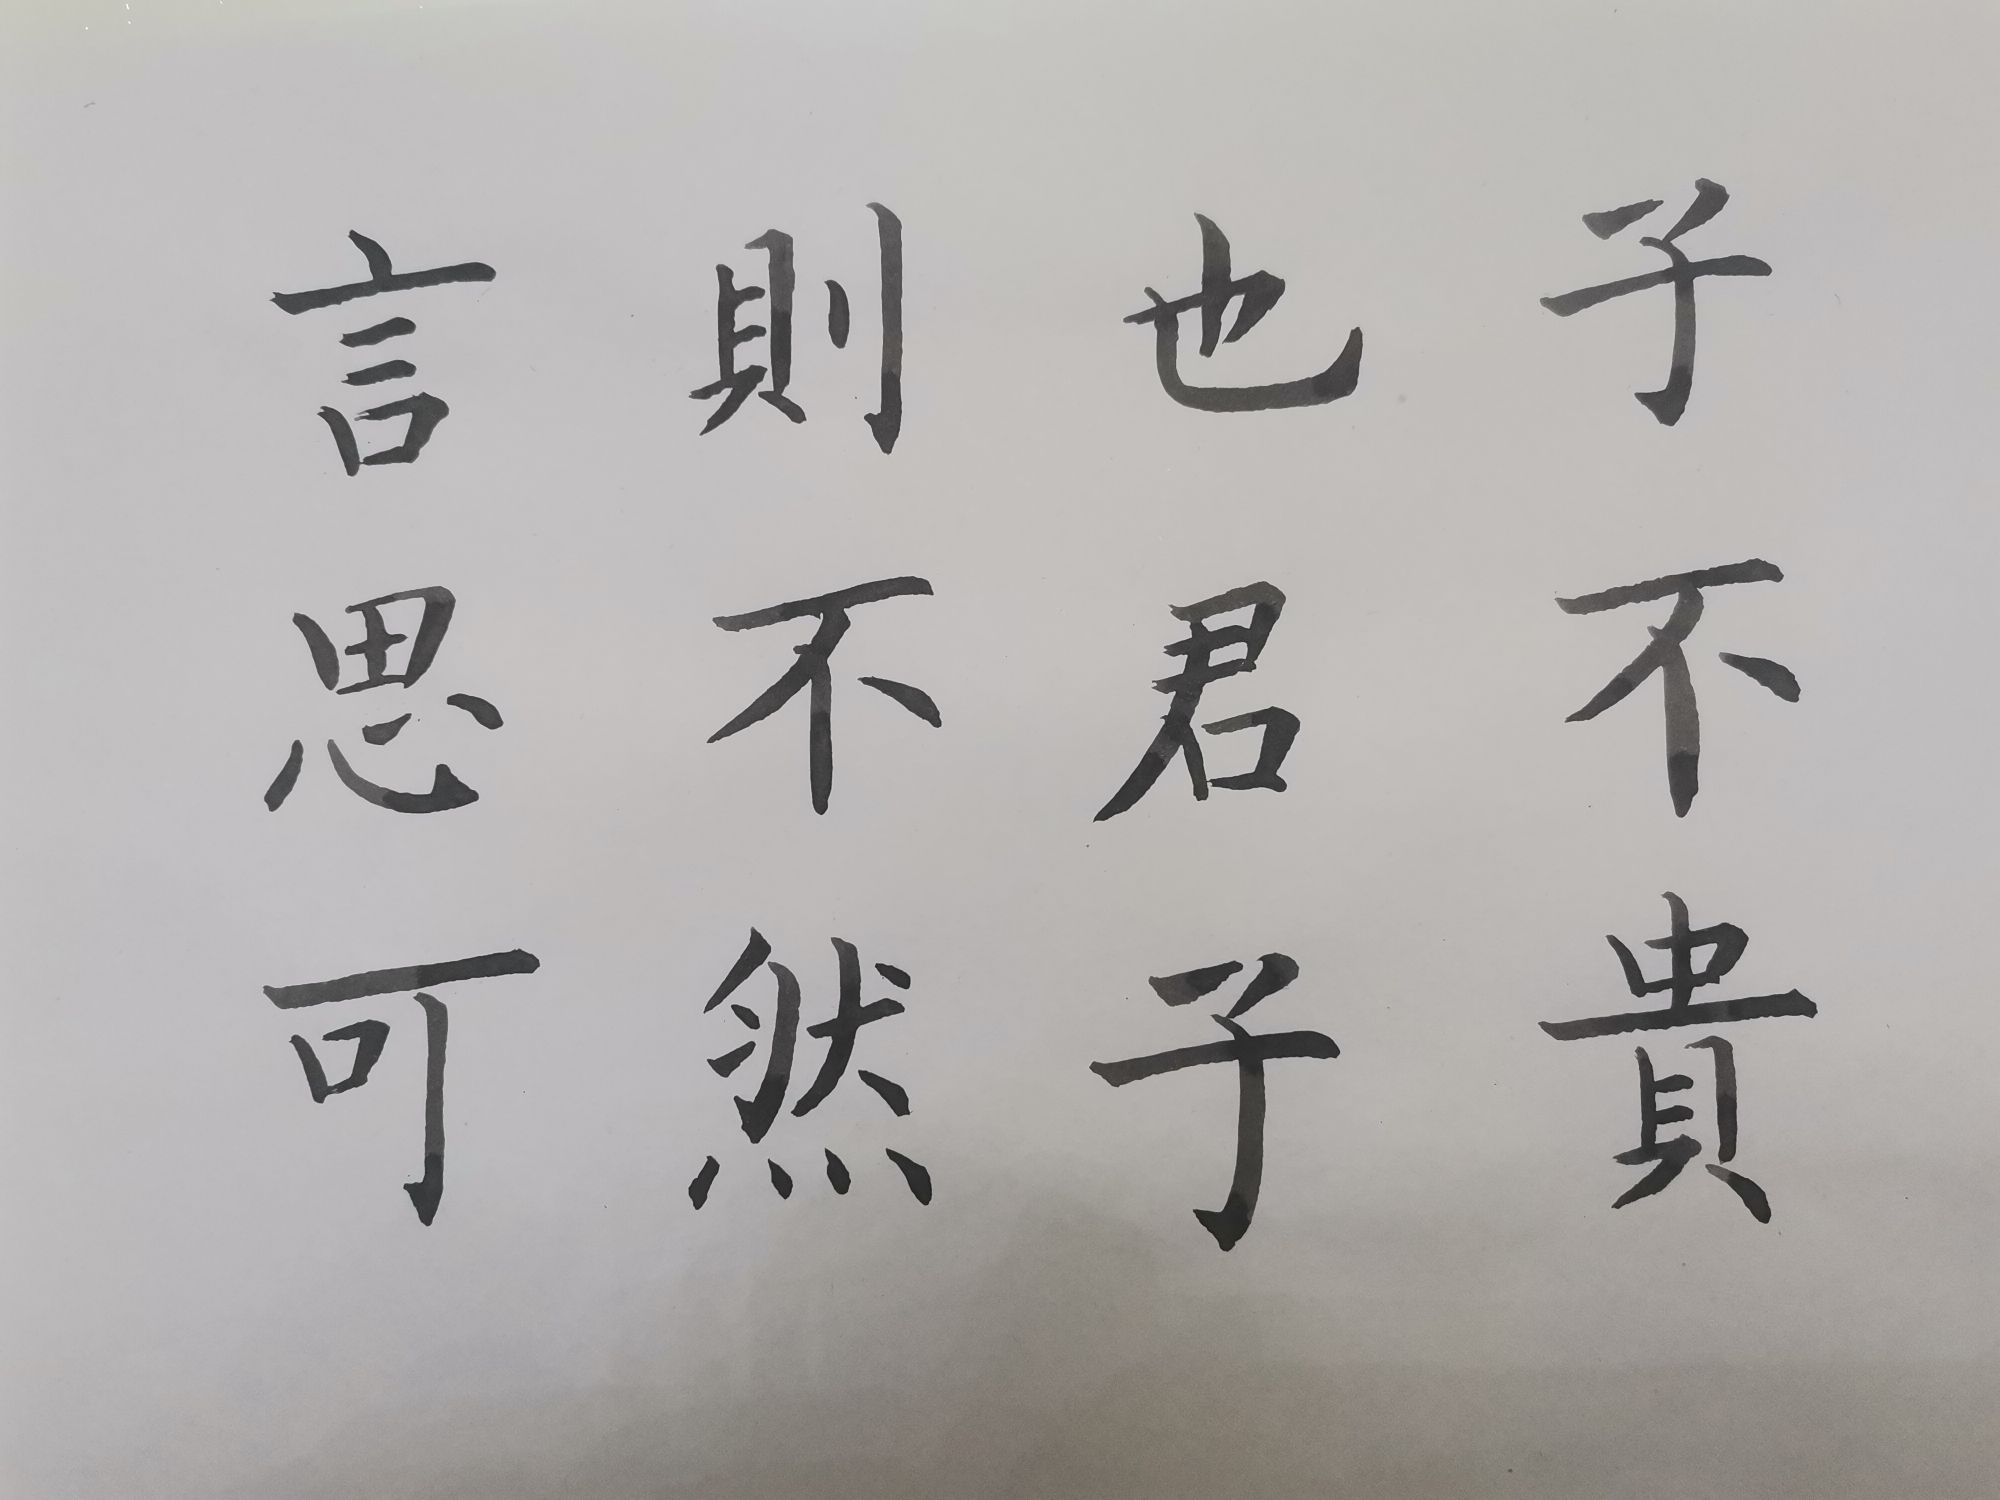 子不貴
也君子
則不然
言思可